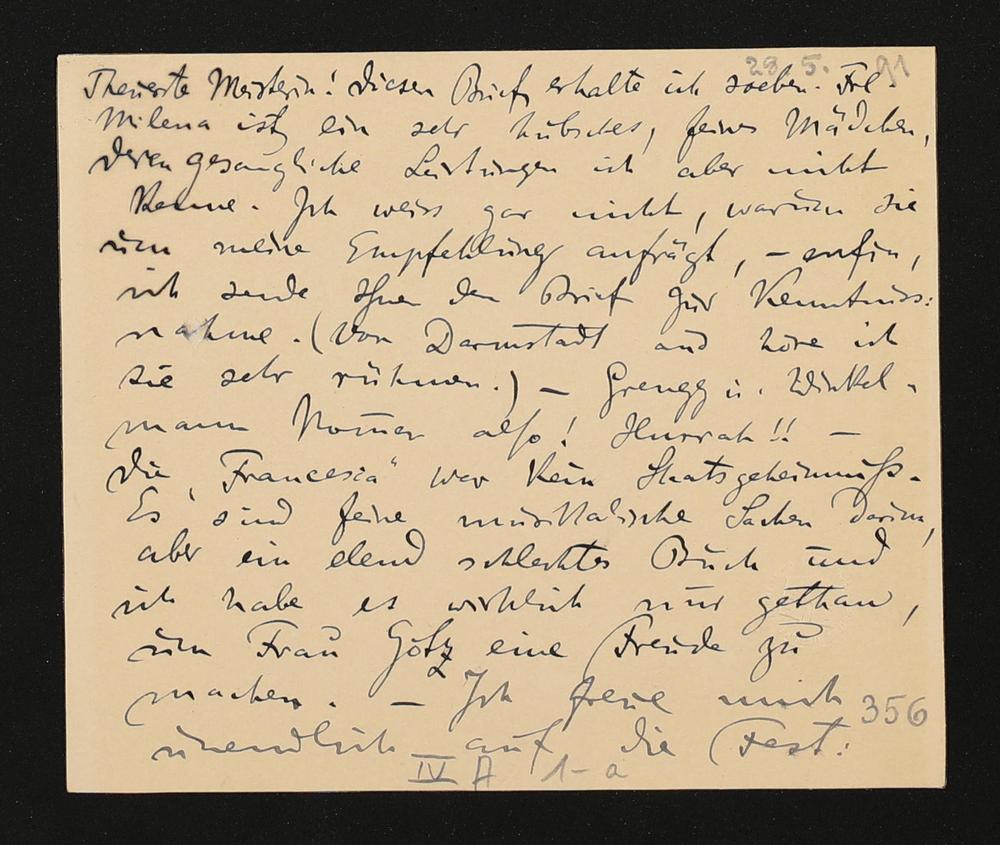 28. 5. 91
Theuerste Meisterin! Diesen Brief erhalte ich soeben. Frl.
Milena ist ein sehr hübsches, feines Mädchen,
deren gesangliche Leistungen ich aber nicht
kenne. Ich weiss gar nicht, warum sie
um meine Empfehlung anfrägt, – enfin,
ich sende Ihnen den Brief zur Kenntniss:
nahme. (Von Darmstadt aus höre ich
sie sehr rühmen.) – Grengg u. Winkel-
mann kommen also! Hurrah!! –
Die „Francesca" war kein Staatsgeheimniß.
Es sind feine musikalische Sachen darin,
aber ein elend schlechtes Buch und
ich habe es wirklich nur gethan,
um Frau Götz eine Freude zu
machen. – Ich freue mich
unendlich auf die Fest:
356
IV A 1-a